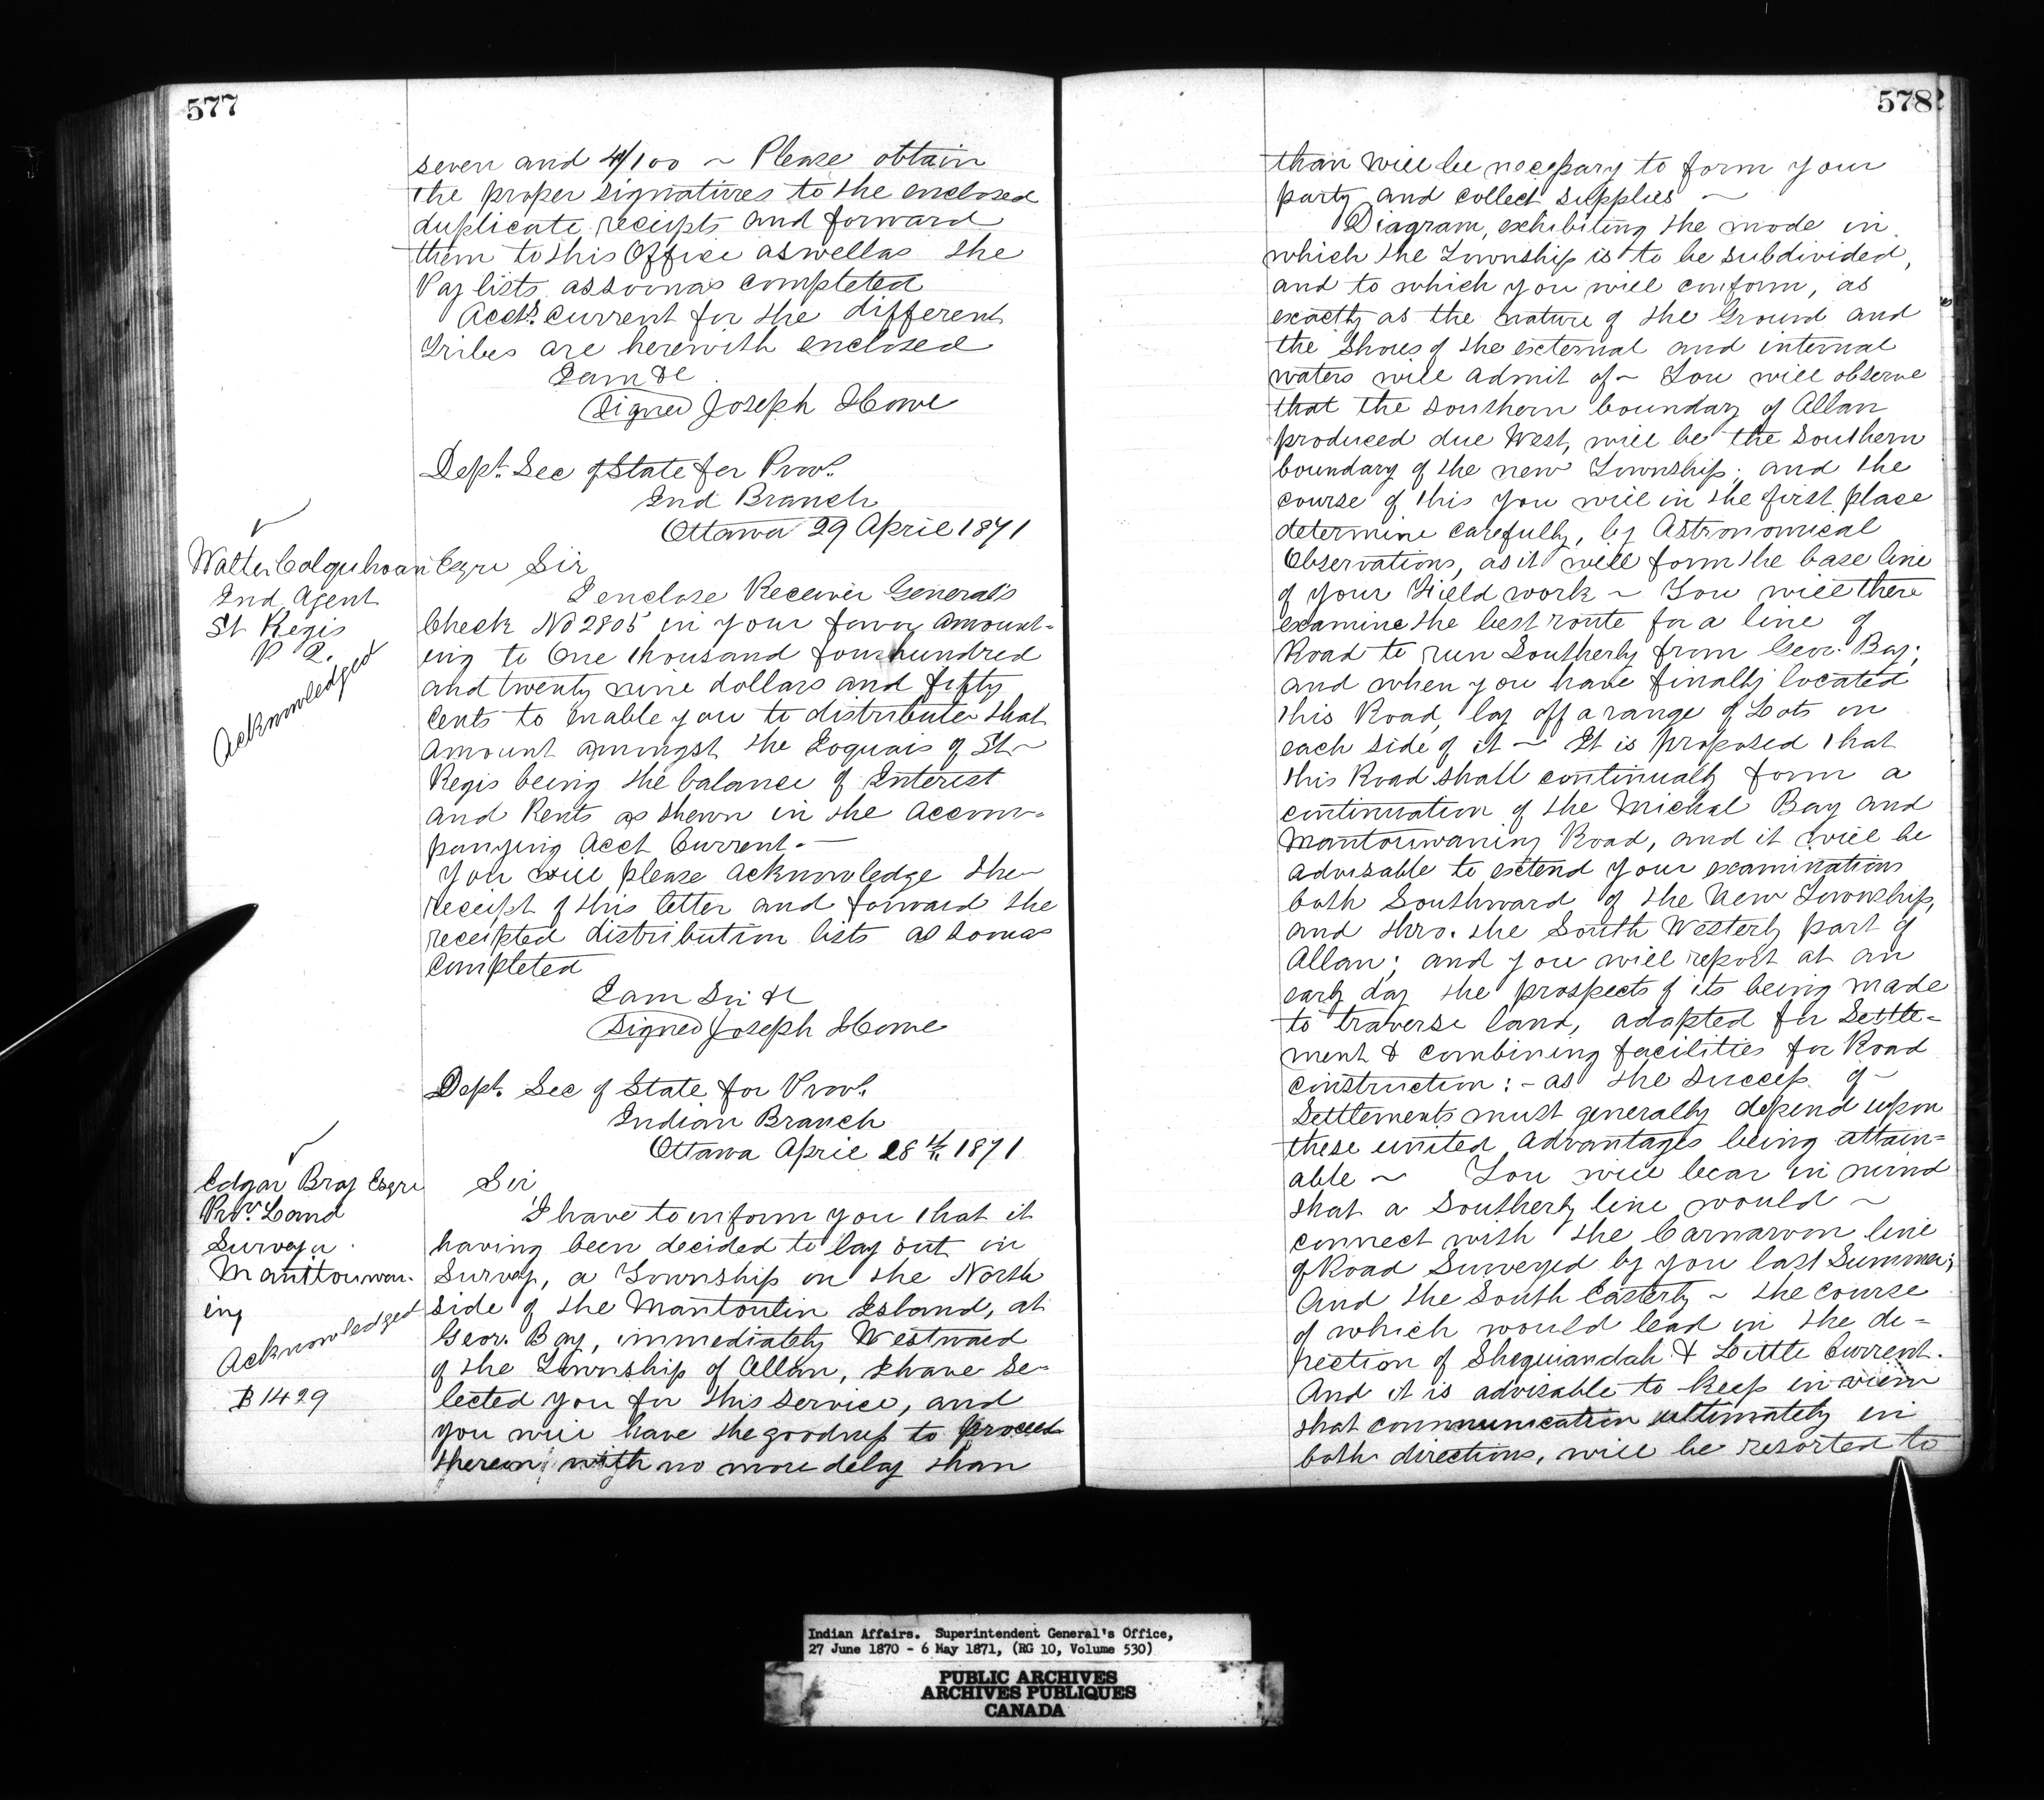 577
seven and 4/100 ~ Please obtain
the proper signatures to the enclosed
duplicate receipts and forward
them to this Office as well as the
Pay lists as soon as completed
Accts. Current for the different
Tribes are herewith enclosed
I am &c
(Signed) Joseph Howe
Dept. Sec of State for Prov.
Ind Branch
Ottawa 29 April 1871
Walter Colquhoun Esqre
Ind Agent
St Regis
P Q.
Acknowledged
Sir
I enclose Receiver General's
Check No 2805 in your favor amount-
ing to One thousand four hundred
and twenty nine dollars and fifty
Cents to enable you to distribute that
amount amongst the Iroquois of St ~
Regis being the balance of Interest
and Rents as shewn in the accom-
panying Acct Current. —
You will please acknowledge the
receipt of this letter and forward the
receipted distribution lists as soon as
completed
I am Sir &c
(Signed) Joseph Howe
Dept. Sec of State for Prov.
Indian Branch
Ottawa April 28th 1871
Edgar Bray Esqre
Prov. Land
Surveyor
Manitouwan-
ing
Acknowledged
B1429
Sir
I have to inform you that it
having been decided to lay out in
Survey, a Township on the North
side of the Mantoulin Island, at
Geor. Bay, immediately Westward
of the Township of Allan, I have se-
lected you for this service, and
you will have the goodness to proceed
therein with no more delay than
578
than will be necessary to form your
party and collect supplies ~
Diagram, exhibiting the mode in
which the Township is to be subdivided,
and to which you will conform, as
exactly as the nature of the Ground and
the Shores of the external and internal
waters will admit of ~ You will observe
that the southern boundary of Allan
produced due West, will be the Southern
boundary of the new Township; and the
course of this you will in the first place
determine carefully, by Astronomical
Observations, as it will form the base line
of your Field work ~ You will there
examine the best route for a line of
Road to run Southerly from Geor. Bay;
and when you have finally located
this Road, lay off a range of Lots on
each side of it ~ It is proposed that
this Road shall continually form a
continuation of the Michal Bay and
Mantouwaning Road, and it will be
advisable to extend your examinations
both Southward of the New Township,
and thro. the South Westerly part of
Allan; and you will report at an
early day the prospects of its being made
to traverse land, adapted for Settle-
ment & combining facilities for Road
construction: - as the success of ~
Settlements must generally depend upon
these united advantages being attain-
able ~ You will bear in mind
that a Southerly line would ~
connect with the Carnarvon line
of Road Surveyed by you last Summer;
And the South Easterly ~ the course
of which would lead in the di-
rection of Sheguiandah & Little Current.
And it is advisable to keep in view
that communication ultimately in
both directions, will be resorted to
Indian Affairs. Superintendent General's Office,
27 June 1870 - 6 May 1871, (RG 10, Volume 530)
PUBLIC ARCHIVES
ARCHIVES PUBLIQUES
CANADA